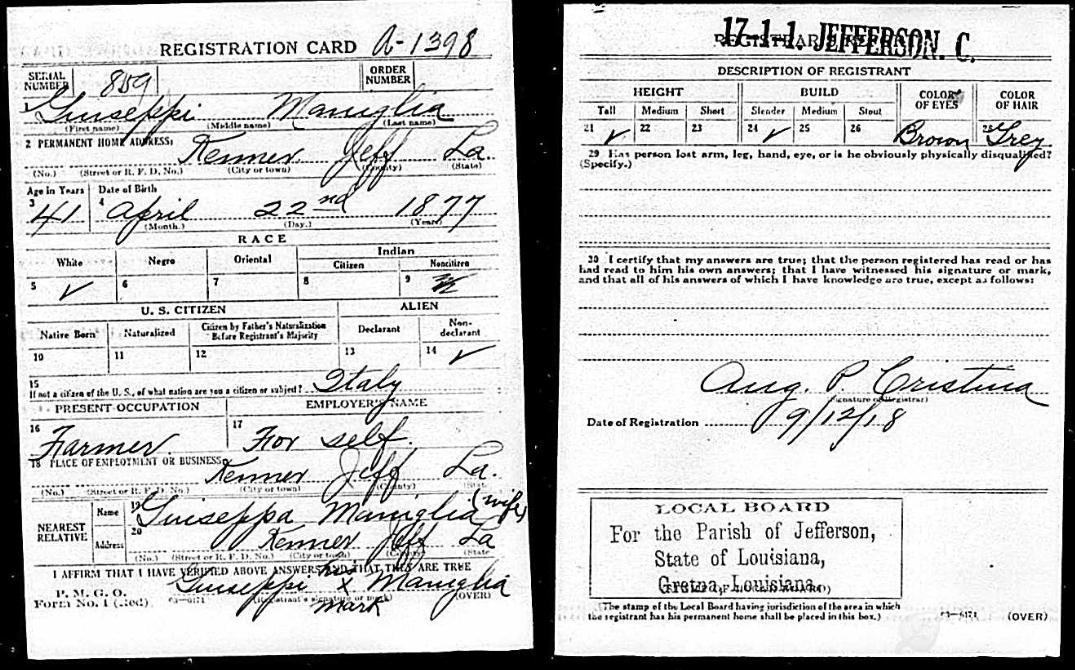 REGISTRATION CARD A-1398
SERIAL NUMBER 859 ORDER NUMBER
1 Guiseppi Maniglia
(First name) (Middle name) (Last name)
2 PERMANENT HOME ADDRESS:
Kenner Jeff La.
(No.) (Street or R. F. D. No.) (City or town) (County) (State)
Age in Years Date of Birth
3 41 4 April 22nd 1877
(Month.) (Day.) (Year)
RACE
White Negro Oriental Indian
Citizen Noncitizen
5 ✓ 6 7 8 9
U. S. CITIZEN ALIEN
Native Born Naturalized Citizen by Father's Naturalization Before Registrant's Majority Declarant Non-declarant
10 11 12 13 14 ✓
15
If not a citizen of the U. S., of what nation are you a citizen or subject? Italy
PRESENT OCCUPATION EMPLOYER'S NAME
16 Farmer. 17 For self.
18 PLACE OF EMPLOYMENT OR BUSINESS:
Kenner Jeff La.
(No.) (Street or R. F. D. No.) (City or town) (County) (State
NEAREST RELATIVE Name 19 Guiseppa Maniglia (wife)
Address 20 Kenner Jeff La
(No.) (Street or R. F. D. No.) (City or town) (County) (State
I AFFIRM THAT I HAVE VERIFIED ABOVE ANSWERS AND THAT THEY ARE TRUE
P. M. G. O.
Form No. 1 (Red) Guiseppi his x mark Maniglia
(Registrant's signature or mark) (OVER)
REGISTRAR'S REPORT
17-1-1. JEFFERSON. C.
DESCRIPTION OF REGISTRANT
HEIGHT BUILD COLOR OF EYES COLOR OF HAIR
Tall Medium Short Slender Medium Stout
21 ✓ 22 23 24 ✓ 25 26 Brown 28 Grey
29 Has person lost arm, leg, hand, eye, or is he obviously physically disqualified?
(Specify.)
30 I certify that my answers are true; that the person registered has read or has
had read to him his own answers; that I have witnessed his signature or mark,
and that all of his answers of which I have knowledge are true, except as follows:
Aug. P. Cristina
(Signature of Registrar)
Date of Registration 9/12/18
LOCAL BOARD
For the Parish of Jefferson,
State of Louisiana,
Gretna, Louisiana.
(The stamp of the Local Board having jurisdiction of the area in which
the registrant has his permanent home shall be placed in this box.)
(OVER)